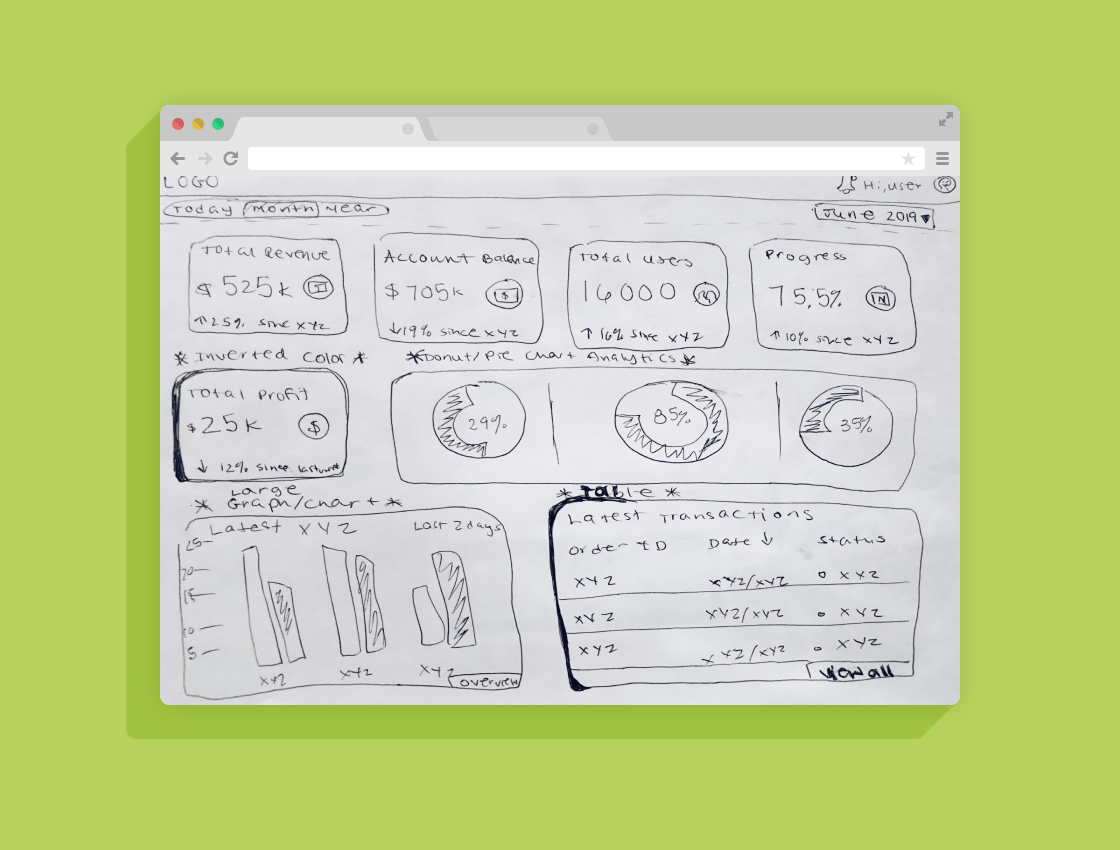 LOGO
Hi, user
Today Month Year
June 2019
Total Revenue
$ 525K
↑ 25% since XYZ
Account Balance
$ 705K
↓ 19% since XYZ
Total users
16000
↑ 16% since XYZ
Progress
75.5%
↑ 10% since XYZ
* Inverted Color *
*Donut/Pie Chart Analytics*
Total Profit
$25K
$
↓ 12% since
29%
85%
35%
Large
* Graph/Chart *
* Table *
Latest XYZ
Last 2 days
25
20
15
10
5
XYZ
XYZ
XYZ
overview
Latest Transactions
Order ID Date ↓ Status
XYZ XYZ/XYZ XYZ
XYZ XYZ/XYZ XYZ
XYZ XYZ/XYZ XYZ
View all